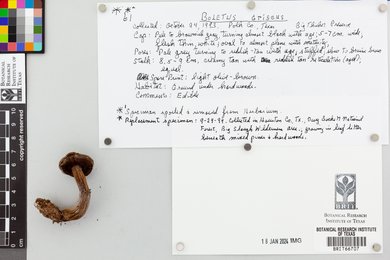 **
61 BOLETUS GRISEUS
Collected: October 24, 1983. Polk Co., Texas Big Thicket Preserve
Cap: Pale to brownish gray turning almost black with age; 5-7cm wide,
flesh thin, white, oval to almost plane with maturity.
Pores: Pale gray turning to reddish-tan with age, stuffed, slow to bruise brown
Stalk: 8.5-9 cm, creamy tan with reddish tan reticulation (age),
equal.
Spore Print: light olive-brown.
Habitat: Ground under hardwoods.
Comments: Edible
* Specimen spoiled & removed from Herbarium.
* Replacement specimen: 9-29-94. Collected in Houston Co., Tx., Davy Crockett National
Forest, Big Slough Wilderness area, growing in leaf litter
beneath mixed pines & hardwoods.
BRIT
Botanical Research
Institute of Texas
18 JAN 2024 YMG
BOTANICAL RESEARCH INSTITUTE
OF TEXAS
BRIT66707